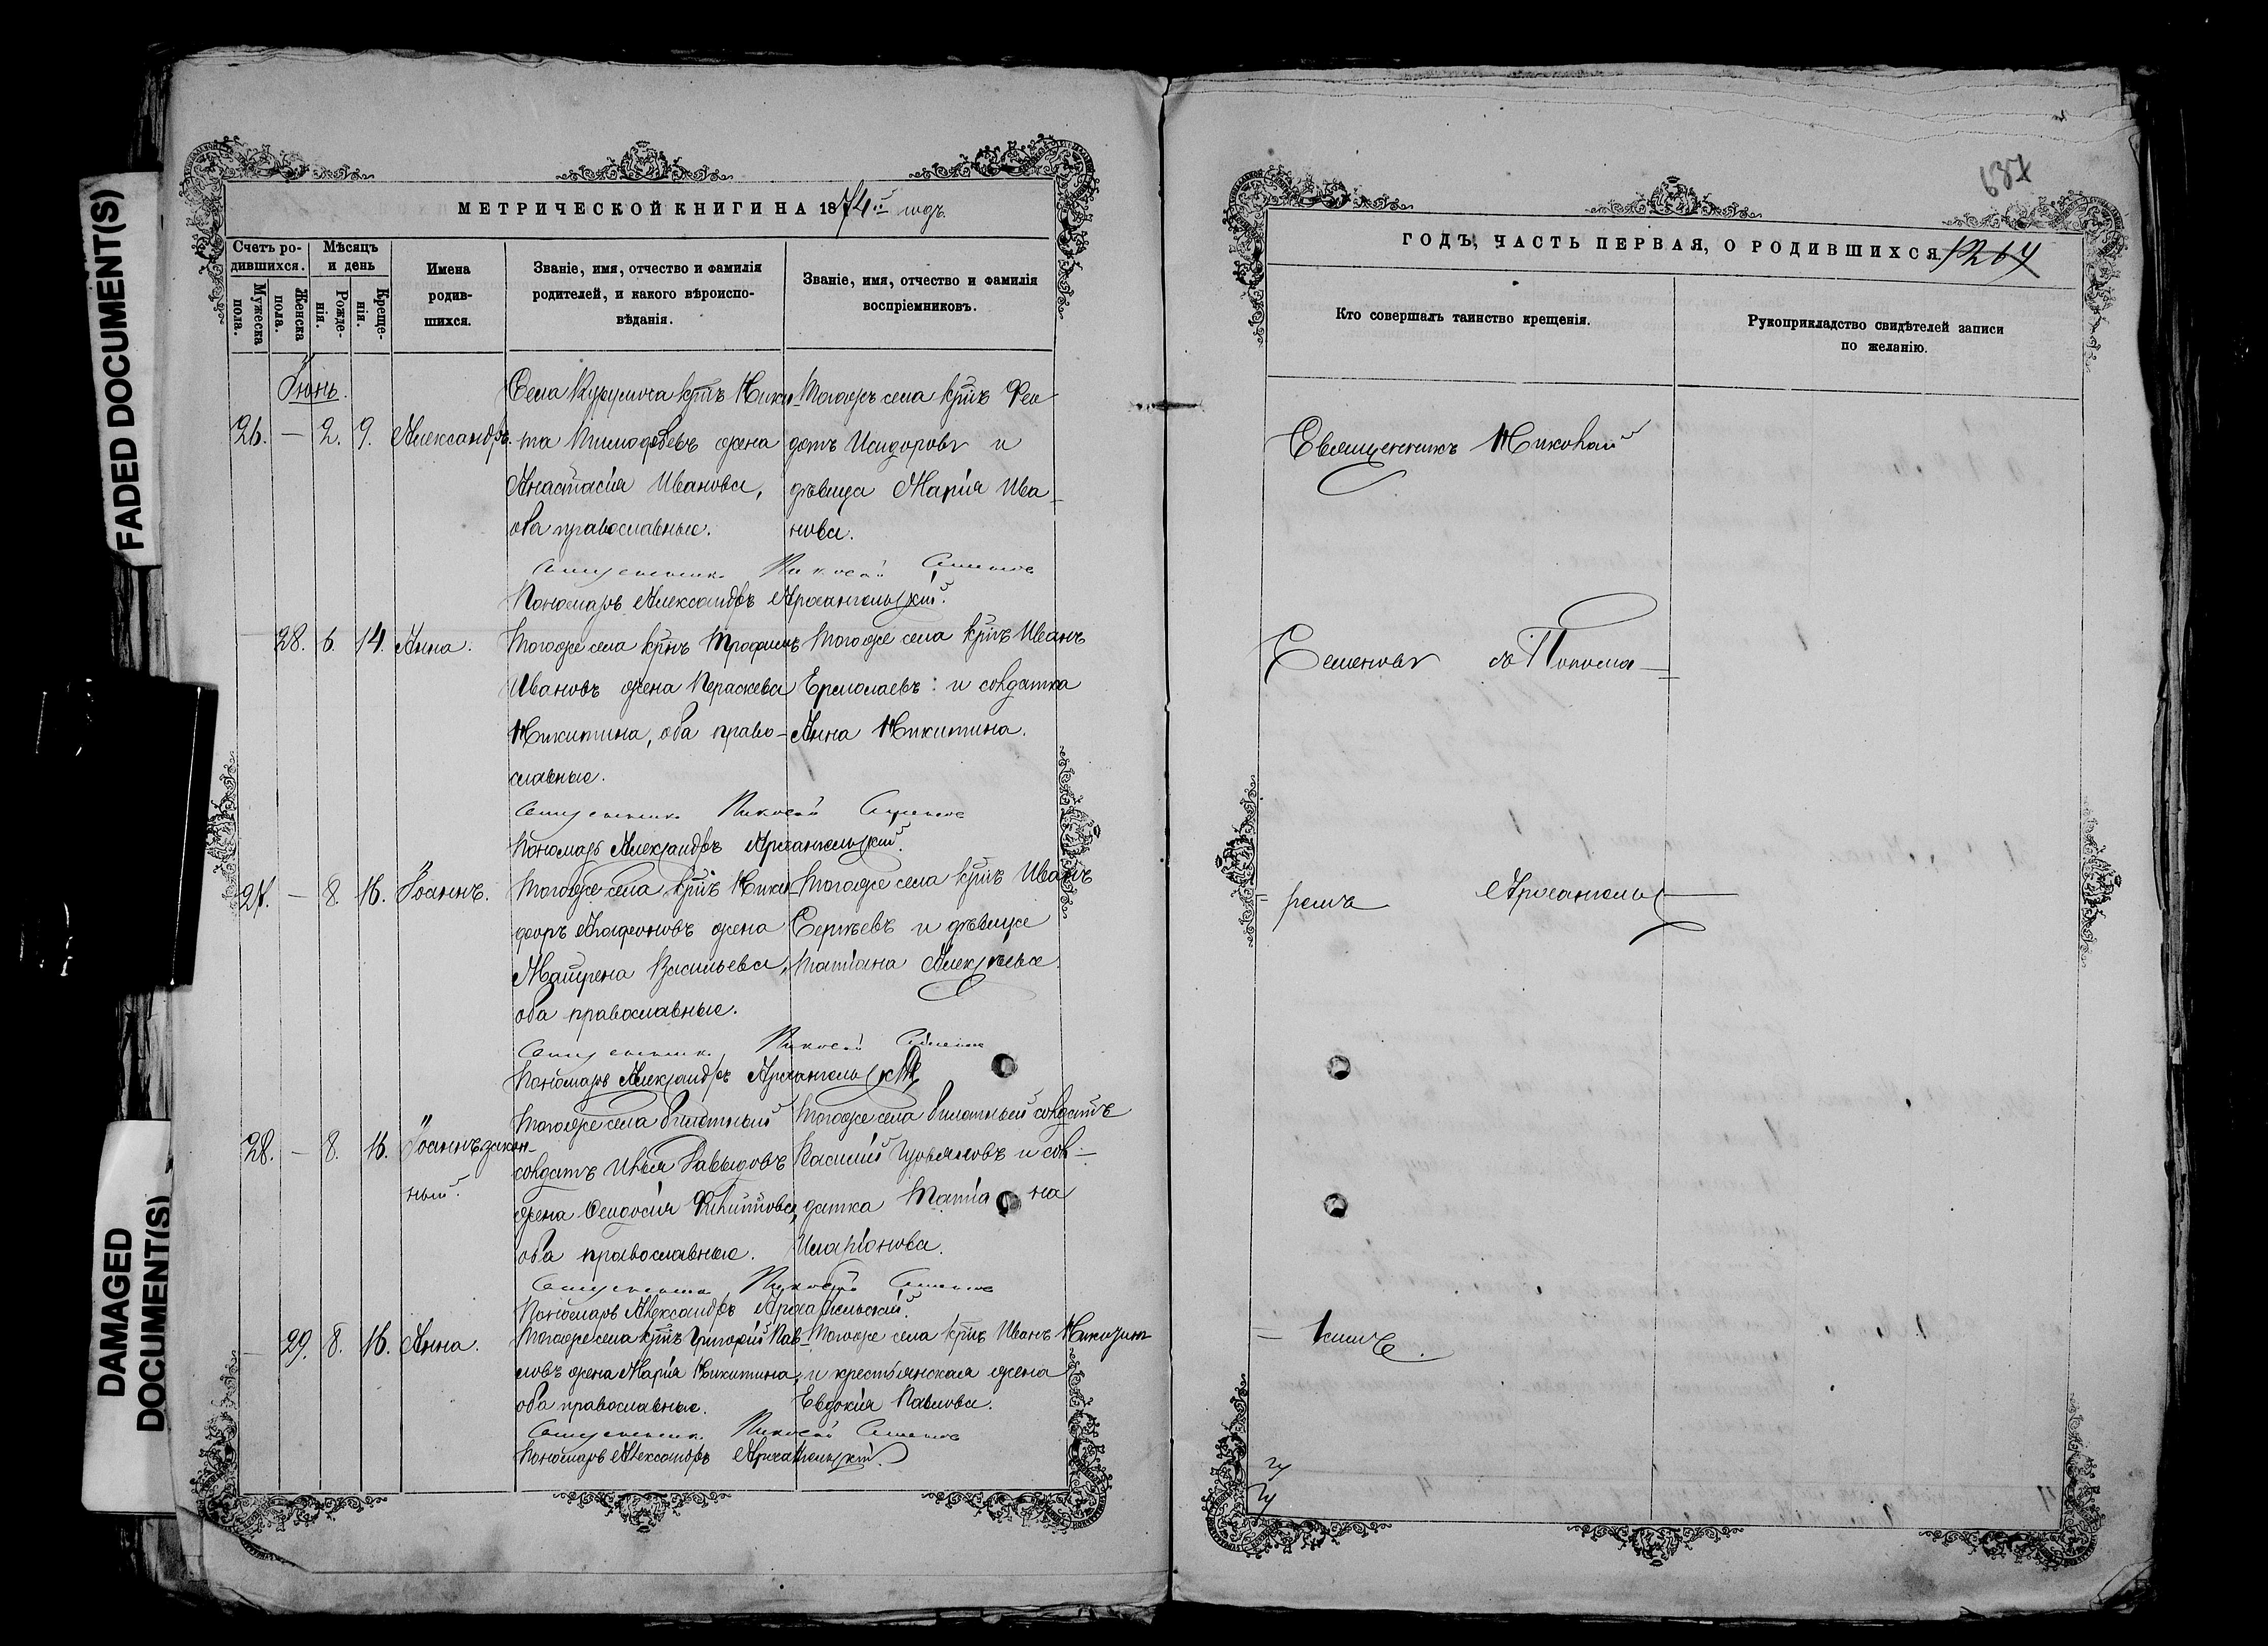 FADED DOCUMENT(S)
DAMAGED
DOCUMENT(S)
МЕТРИЧЕСКОЙ КНИГИ НА 1874й годъ.
Счетъ ро-
дившихся.
Мужеска
пола.
Женска
пола.
Мѣсяцъ
и день
Рожде-
нія.
Креще-
нія.
Имена
родив-
шихся.
Званіе, имя, отчество и фамилія
родителей, и какого вѣроиспо-
вѣданія.
Званіе, имя, отчество и фамилія
воспріемниковъ.
Іюнь.
26. — 2. 9. Александръ.
Села крнъ Ники-
та Тимофѣевъ жена
Анастасія Иванова,
оба православные.
Тогоже села крнъ Фео
дотъ Исидоровъ и
дѣвица Марія Ива-
нова.
Священникъ Николай Семеновъ
Пономарь Александръ Архангельскій.
28. 6. 14. Анна.
Тогоже села крнъ Трофимъ
Ивановъ жена Параскева
Никитина, оба право-
славные.
Тогоже села крнъ Иванъ
Ермолаевъ: и солдатка
Анна Никитина.
Священникъ Николай Семеновъ
Пономарь Александръ Архангельскій.
27. — 8. 16. Іоаннъ.
Тогоже села крнъ Ники
форъ Агафоновъ жена
Матрена Васильева,
оба православные.
Тогоже села крнъ Иванъ
Сергѣевъ и дѣвица
Татіана Алексѣева.
Священникъ Николай Семеновъ
Пономарь Александръ Архангельскій
28. — 8. 16. Іоаннъ закон-
ный.
Тогоже села билетный
солдатъ Илья Давыдовъ
жена Феодосія Филиппова,
оба православные.
Тогоже села билетный солдатъ
Василій и сол-
датка Татіана
Иларіонова.
Священникъ Николай Семеновъ
Пономарь Александръ Архангельскій
— 29. 8. 16. Анна.
Тогоже села крнъ Григорій Пав-
ловъ жена Марія Никитина,
оба православные.
Тогоже села крнъ Иванъ
и крестьянская жена
Евдокія Павлова.
Священникъ Николай Семеновъ
Пономарь Александръ Архангельскій.
637
ГОДЪ, ЧАСТЬ ПЕРВАЯ, О РОДИВШИХСЯ 1264
Кто совершалъ таинство крещенія.
Рукоприкладство свидѣтелей записи
по желанію.
Священникъ Николай
Семеновъ съ Понома-
= ремъ Архангельс-
= кимъ.